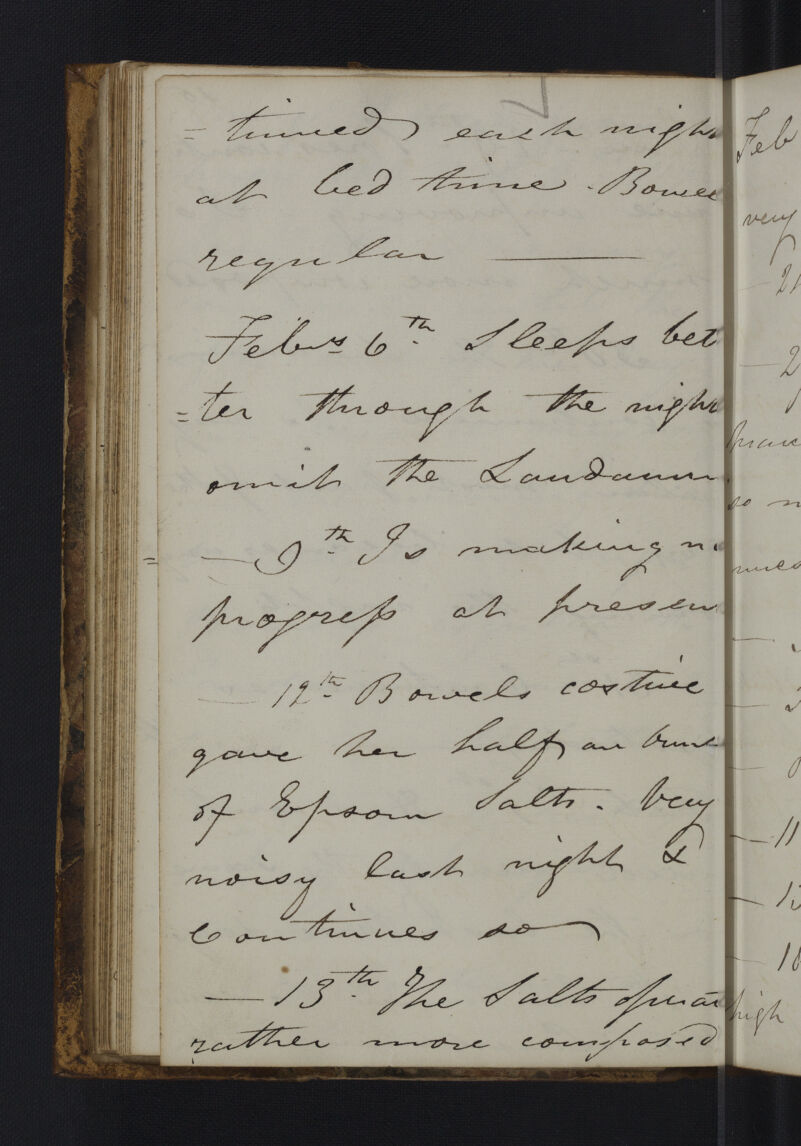 = tinued each nigh
at bed time. Bowe
regular
Feb.ry 6th Sleeps bet
=ter through the nigh
omit the Laudanum
— 9th Is making n
progress at presen
— 12th Bowels costive
gave her half an
of Epsom Salts. Very
noisy last night &
Continues so
— 13th The Salts
rather more composed
Feb
very
high